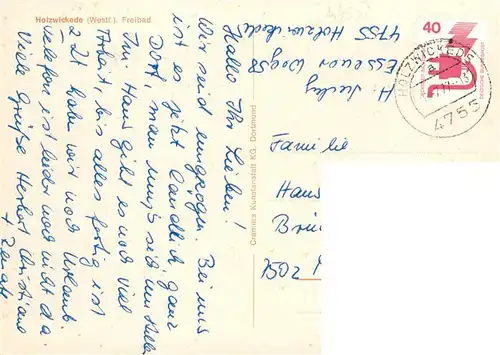 Holzwickede (Westf.). Freibad
Hallo Ihr Lieben!
Wir sind umgezogen. Bei uns
ist es jetzt ländlich, ganz
Dorf, man muß sich umstellen
Im Haus gibt es noch viel
Arbeit, bis alles fertig ist
z Zt. haben wir noch Urlaub.
Telefon ist leider noch nicht da.
Viele Grüße Herbert Christiane
+ Renate
Cramers Kunstanstalt KG. Dortmund
H
Essener Weg 58
4755 Holzwickede
40
HOLZWICKEDE
a
4755
Familie
Hans
Brü
7502